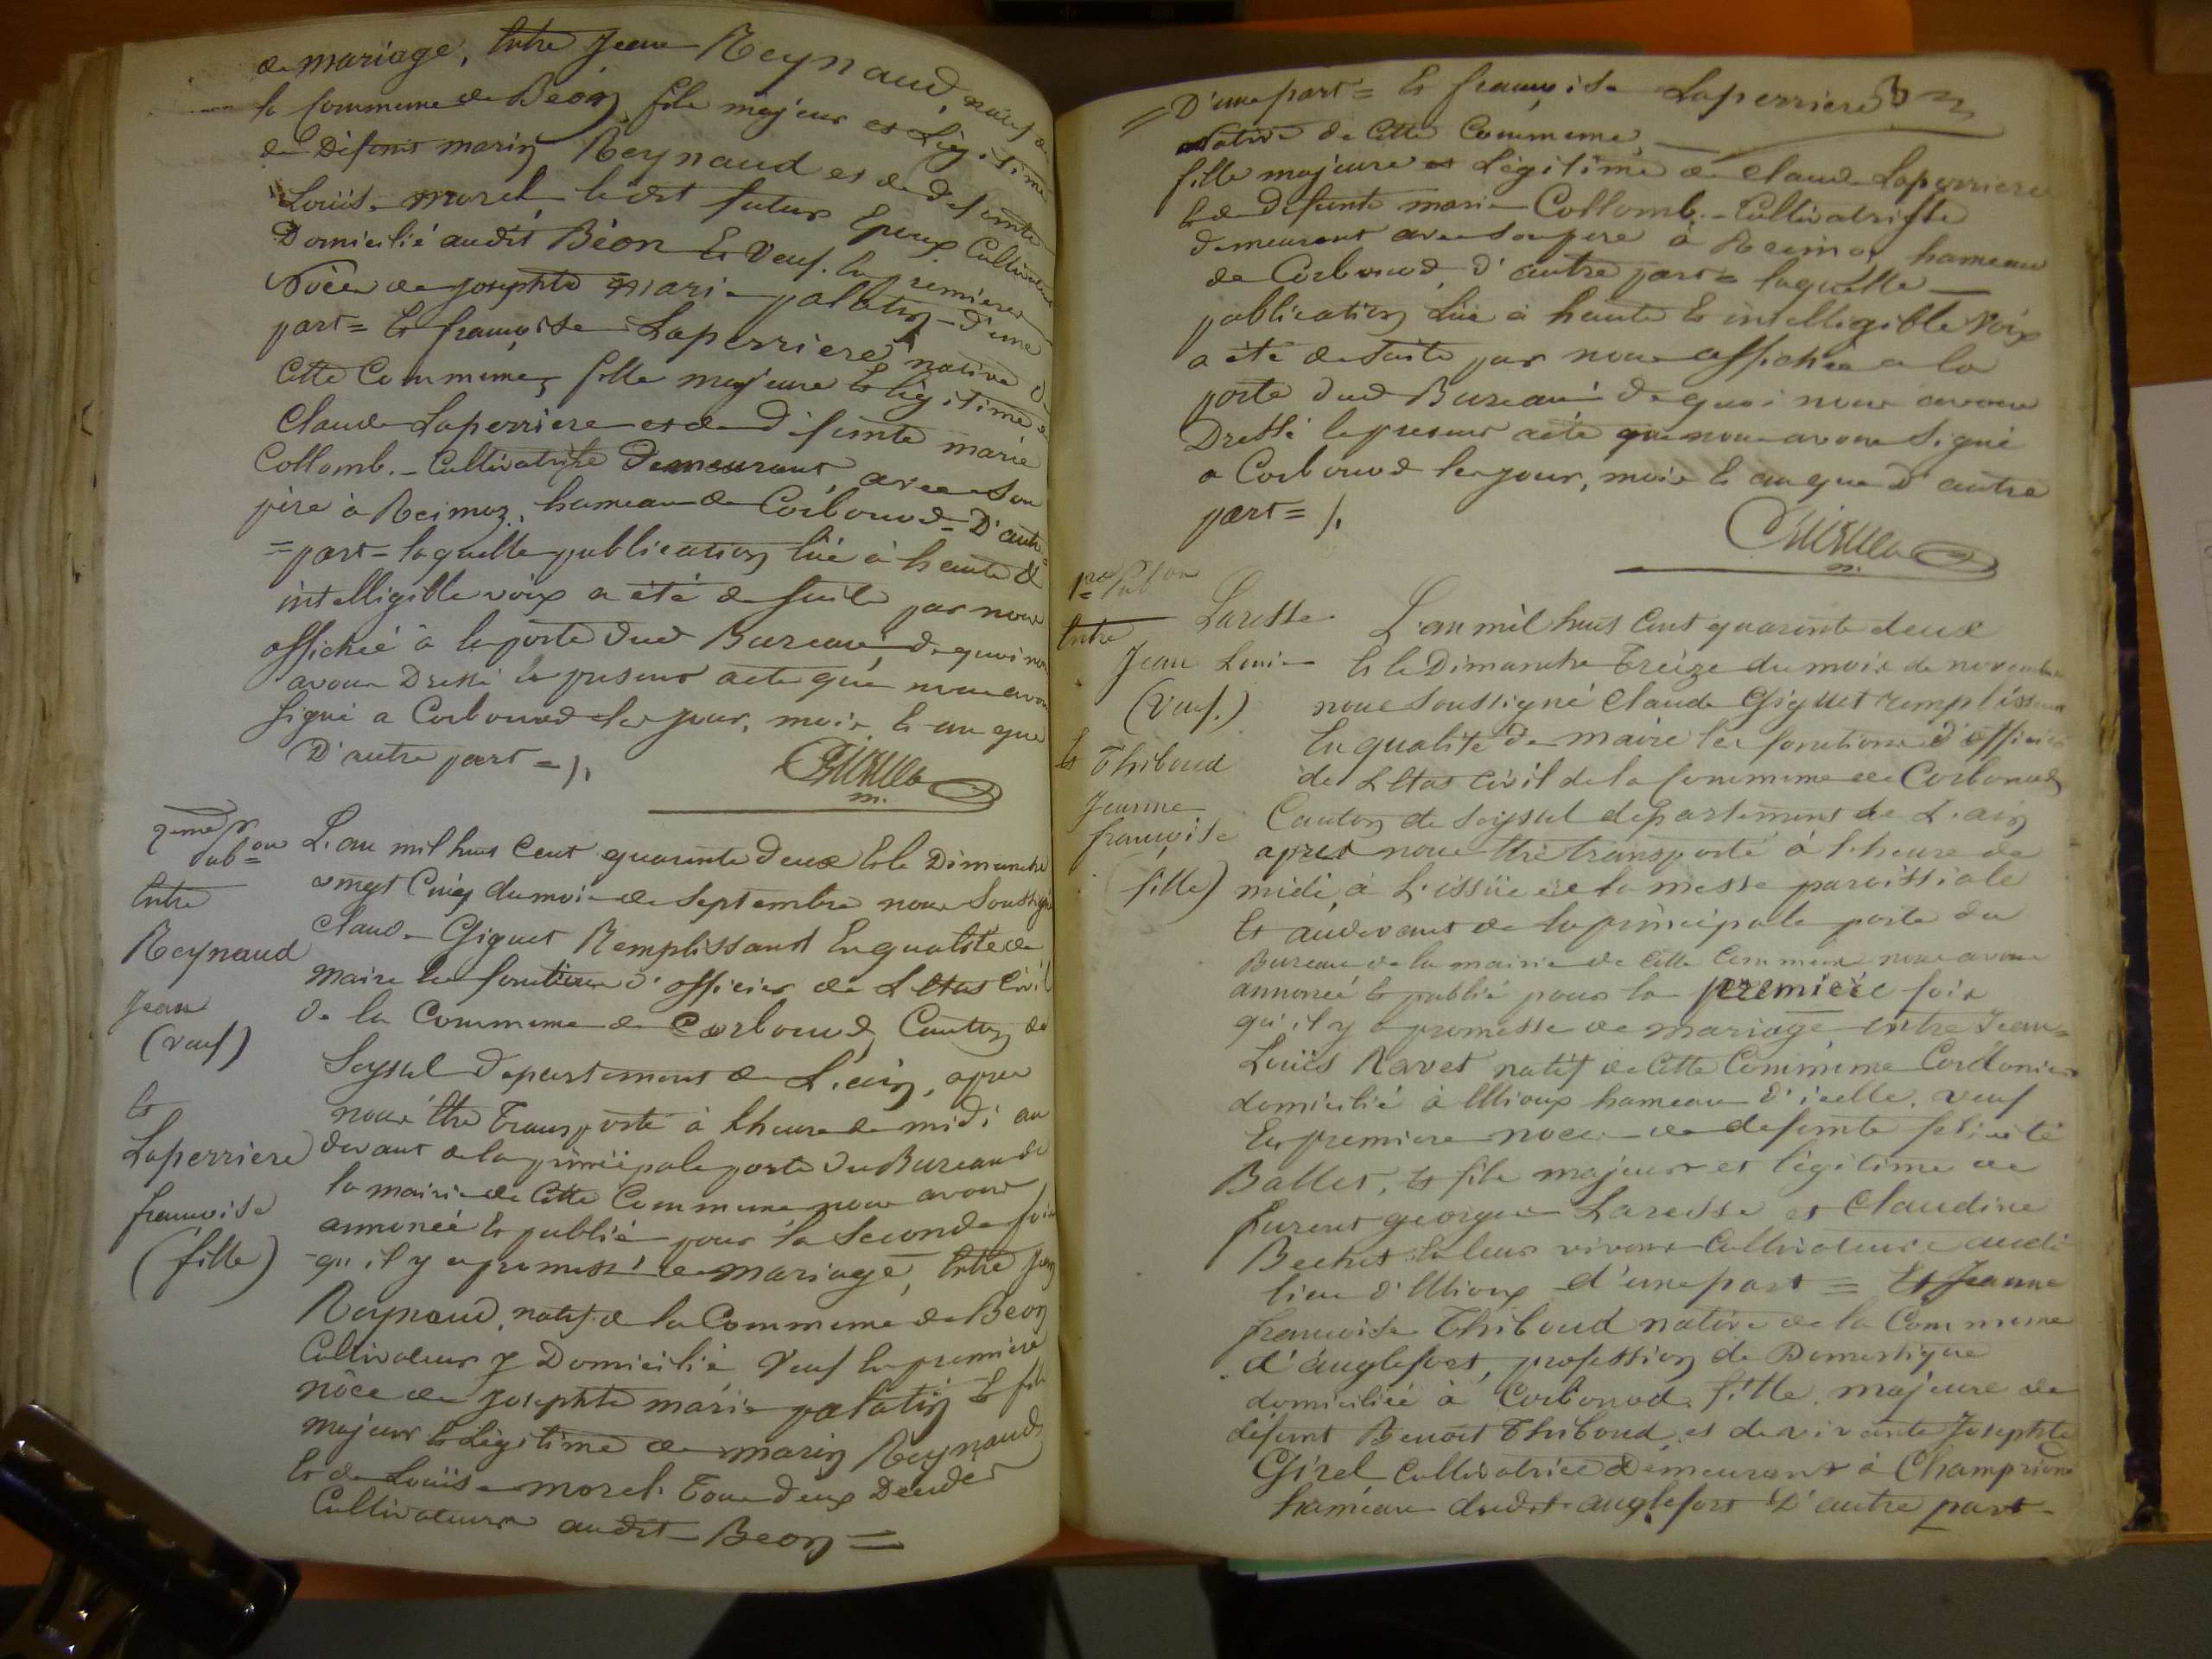 de mariage, Entre Jean Reynaud, natif de
la Commune de Béon, fils majeur et Légitime
de Défunt marin Reynaud et de défunte
Louïse morel, ledit futur Epoux Cultivateur
Domicilié audit Béon Et Veuf En premiere
Nôce de Josephte Marie palatin - D'une
part = Et françoise Laperriere, native de
Cette Commune, fille majeure Et légitime de
Claude Laperriere et de Défunte marie
Collomb. - Cultivatrice Demeurant, avec Son
père à Reimoz, hameau de Corbonod - D'autre
= part - laquelle publication lüe à haute &
intelligible voix a été de suite par nous
affichée à la porte dud Bureau, de quoi nous
avons Dressé le présent acte que nous avons
Signé a Corbonod les jour, mois Et an que
D'autre part = /.
2eme Pub on
Entre
Reynaud
Jean
(veuf)
Et
Laperriere
francoise
(fille)
L'an mil huit Cent quarante deux Et le Dimanche
vingt Cinq du mois de Septembre nous Soussigné
Claude Giguet Remplissant En qualité de
maire les fonctions d'officier de L'Etat Civil
de la Commune de Corbonod Canton de
Seyssel Departement de L'ain, apres
nous être Transporté à l'heure de midi au
devant de la principale porte du Bureau de
la mairie de Cette Commune nous avons
annoncé Et publié pour la Seconde fois
qu'il y a promesse de mariage, Entre Jean
Reynaud, natif de la Commune de Béon
Cultivateur y Domicilié, Veuf En premiere
nôce de Josephte marie palatin Et fils
majeur Et Légitime de marin Reynaud
Et de Louïse morel Tous deux Décédés
Cultivateurs audit Beon =
= D'une part = Et françoise Laperriere
Native de Cette Commune,
fille majeure et Légitime de Claude Laperriere
Et de Défunte marie Collomb. - Cultivatrice
demeurant avec Son père à Reimoz, hameau
de Corbonod, D'autre part = laquelle
publication Lüe à haute Et intelligible Voix
a été de Suite par nous affichée a la
porte dud Bureau de quoi nous avons
Dressé le present acte que nous avons Signé
a Corbonod les jour, mois Et an que D'autre
part = /.
1re Pub on
Entre
Laresse
Jean Louis
(Veuf.)
Et Thiboud
Jeanne
françoise
(fille)
L'an mil huit Cent quarante deux
Et le Dimanche Treize du mois de novembre
nous Soussigné Claude Giguet remplissant
En qualité de maire les fonctions d'officier
de L'Etat Civil de la Commune de Corbonod
Canton de Seyssel departement de L'ain
apres nous être transporté à l'heure de
midi, à L'issüe de la messe paroissiale
Et audevant de la principale porte du
Bureau de la mairie de Cette Commune nous avons
annoncé Et publié pour la premiere fois
qu'il y a promesse de mariage, entre Jean=
Louis Ravet natif de Cette Commune Cordonier
domicilié à Etrioux hameau d'icelle, veuf
En premiere noces de defunte felicité
Ballet, Et fils majeur et légitime de
furent georges Laresse et Claudine
Bechet En leur vivant Cultivateurs audit
lieu d'Etrioux d'une part = Et Jeanne
francoise Thiboud native de la Commune
d'anglefort, profession de Domestique
domiciliée à Corbonod, fille majeure de
défunt Benoit Thiboud et de vivante Josephte
Girel Cultivatrice Demeurant à Champriond
hameau dudit anglefort D'autre part -